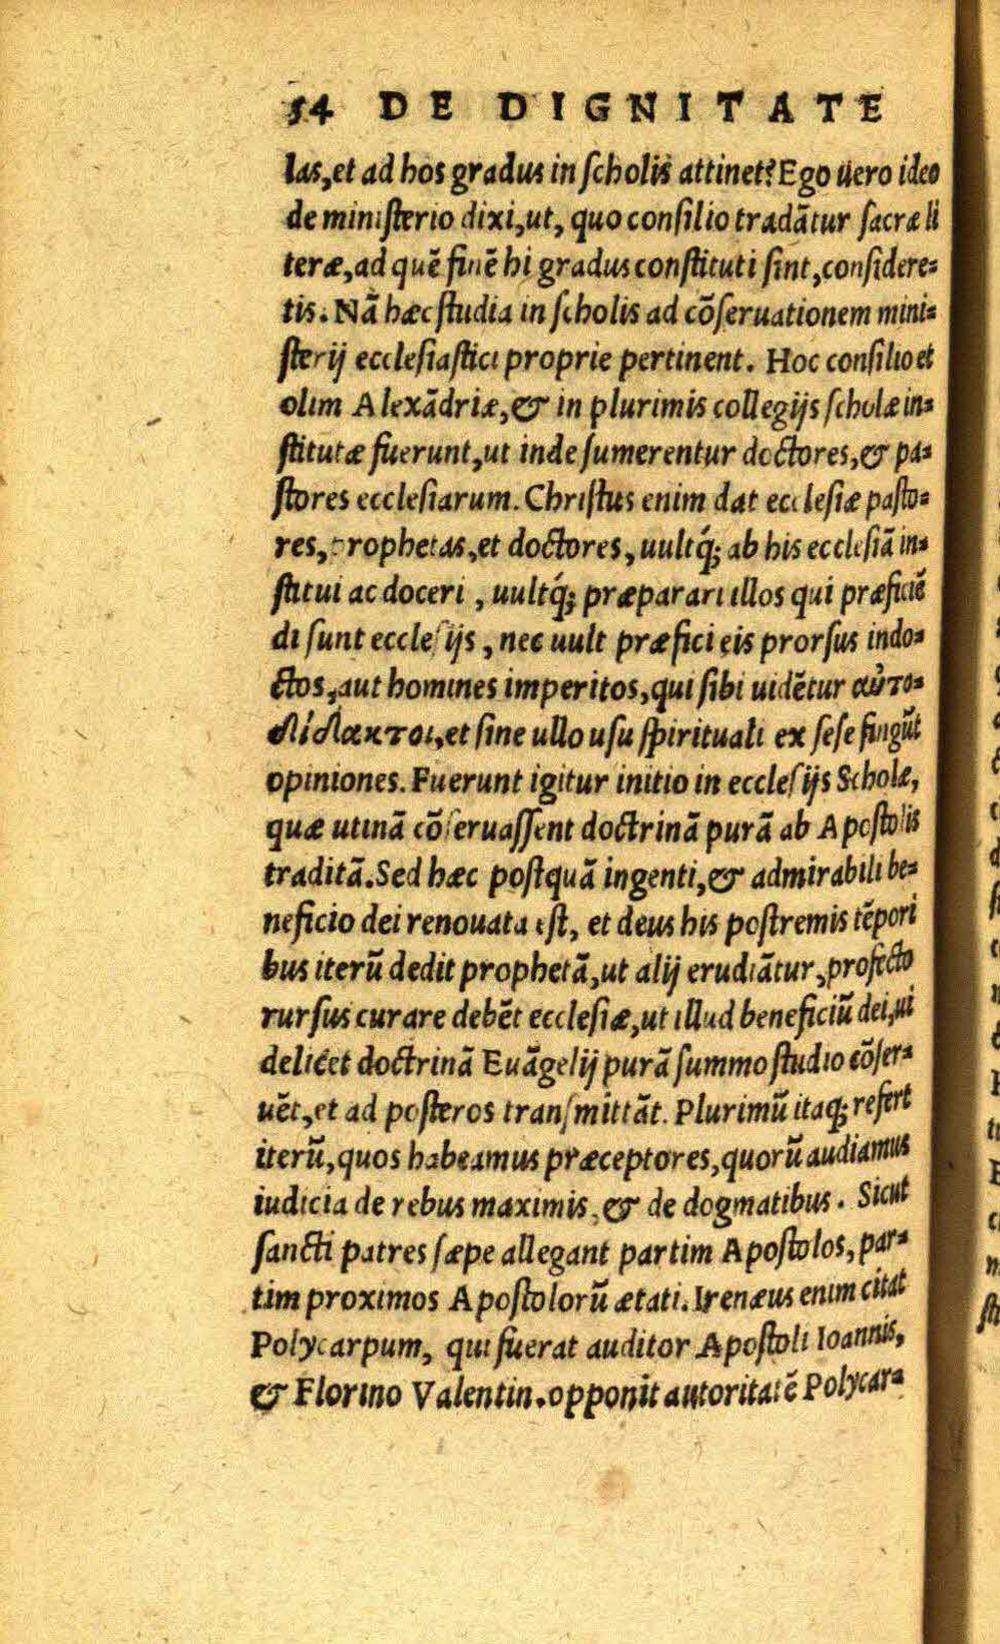 54 DE DIGNITATE
las,et ad hos gradus in ſcholis attinet? Ego uero ideo
de miniſterio dixi,ut, quo conſilio tradātur ſacræ li
teræ,ad quē finē hi gradus conſtituti ſint,conſidere=
tis. Nā hæc ſtudia in ſcholis ad cōſeruationem mini=
ſterij eccleſiaſtici proprie pertinent. Hoc conſilio et
olim Alexādriæ,& in plurimis collegijs ſcholæ in=
ſtitutæ fuerunt,ut inde ſumerentur doctores,& pa=
ſtores eccleſiarum. Chriſtus enim dat eccleſiæ paſto=
res,prophetas,et doctores, uultq́; ab his eccleſiā in=
ſtitui ac doceri , uultq́; præparari illos qui præficiē
di ſunt eccleſijs , nec uult præfici eis prorſus indo=
ctos,aut homines imperitos,qui ſibi uidētur αὐτο=
δίδακτοι,et ſine ullo uſu ſpirituali ex ſeſe fingūt
opiniones. Fuerunt igitur initio in eccleſijs Scholæ,
quæ utinā cōſeruaſſent doctrinā purā ab Apoſtolis
traditā. Sed hæc poſtquā ingenti,& admirabili be=
neficio dei renouata eſt, et deus his poſtremis tēpori
bus iterū dedit prophetā,ut alij erudiātur,profecto
rurſus curare debēt eccleſiæ,ut illud beneficiū dei,ui
delicet doctrinā Euāgelij purā ſummo ſtudio cōſer=
uēt,et ad poſteros tranſmittāt. Plurimū itaq; refert
iterū,quos habeamus præceptores,quorū audiamus
iudicia de rebus maximis,& de dogmatibus. Sicut
ſancti patres ſæpe allegant partim Apoſtolos, par=
tim proximos Apoſtolorū ætati. Irenæus enim citat
Polycarpum, qui fuerat auditor Apoſtoli Ioannis,
& Florino Valentin. opponit autoritatē Polycar=